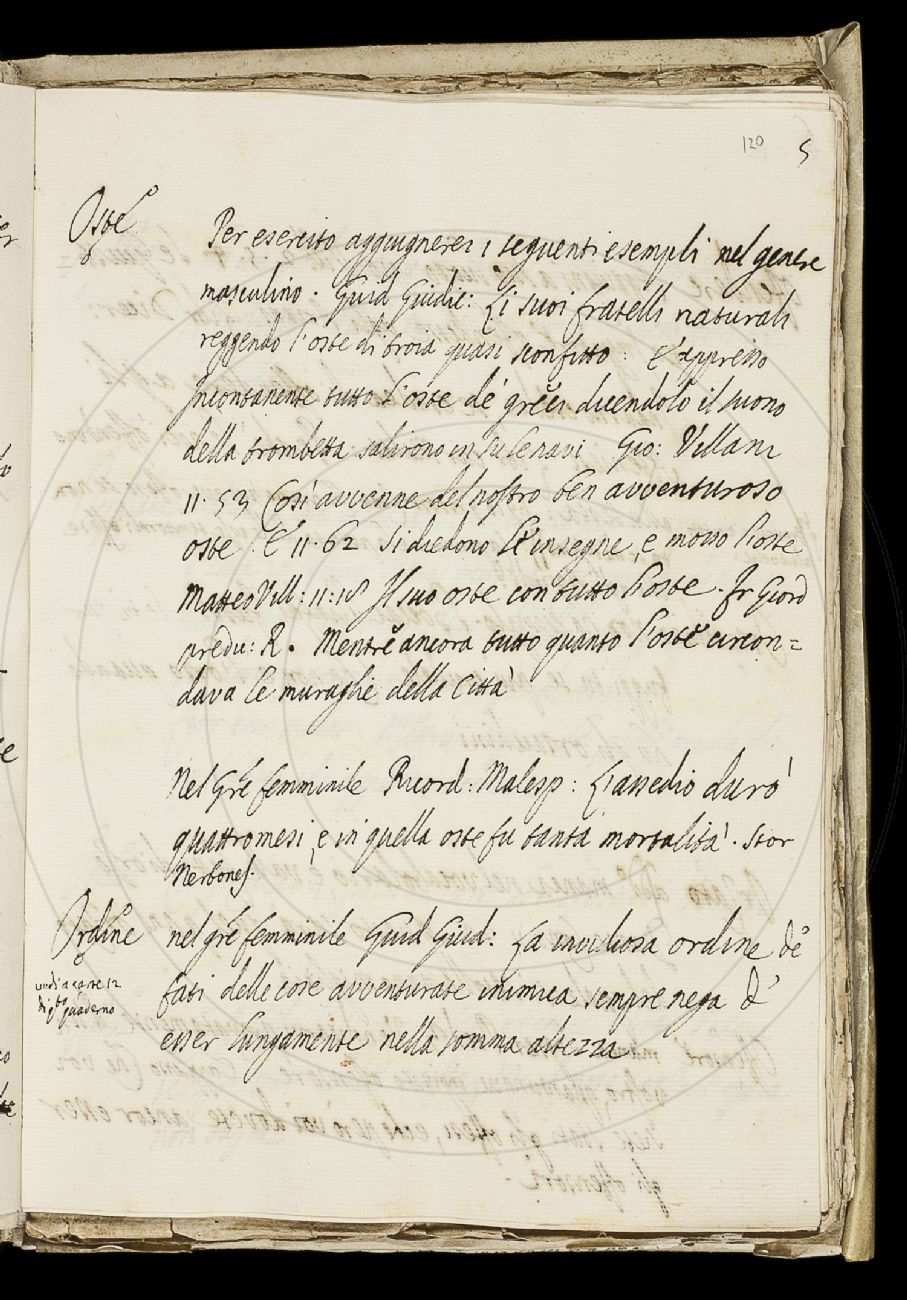 120 5
Oste
Per esercito aggiugnerei i seguenti esempli nel genere
masculino. Guid Giudic: Li suoi fratelli naturali
reggendo l'oste di troia quasi sconfitto: E appresso
Incontanente tutto l'oste de' greci dicendolo il suono
della trombetta salirono in su le navi Gio: Villani
11. 53 Così avvenne del nostro ben avventuroso
oste. E 11. 62 si diedono le insegne, e mosso l'oste
Matteo Vill: 11:18 Il suo oste con tutto l'oste. Fr Giord
predic: R. Mentre ancora tutto quanto l'oste circon=
dava le muraglie della Città
Nel gre femminile Ricord: Malesp: L'assedio durò
quattro mesi, e in quella oste fu tanta mortalità. Stor
Nerbones.
Ordine
nel gre femminile Guid Giud: La invidiosa ordine de'
vedi a carte 12
di qto quaderno
fati delle cose avventurate inimica sempre nega d'
esser lungamente nella somma altezza